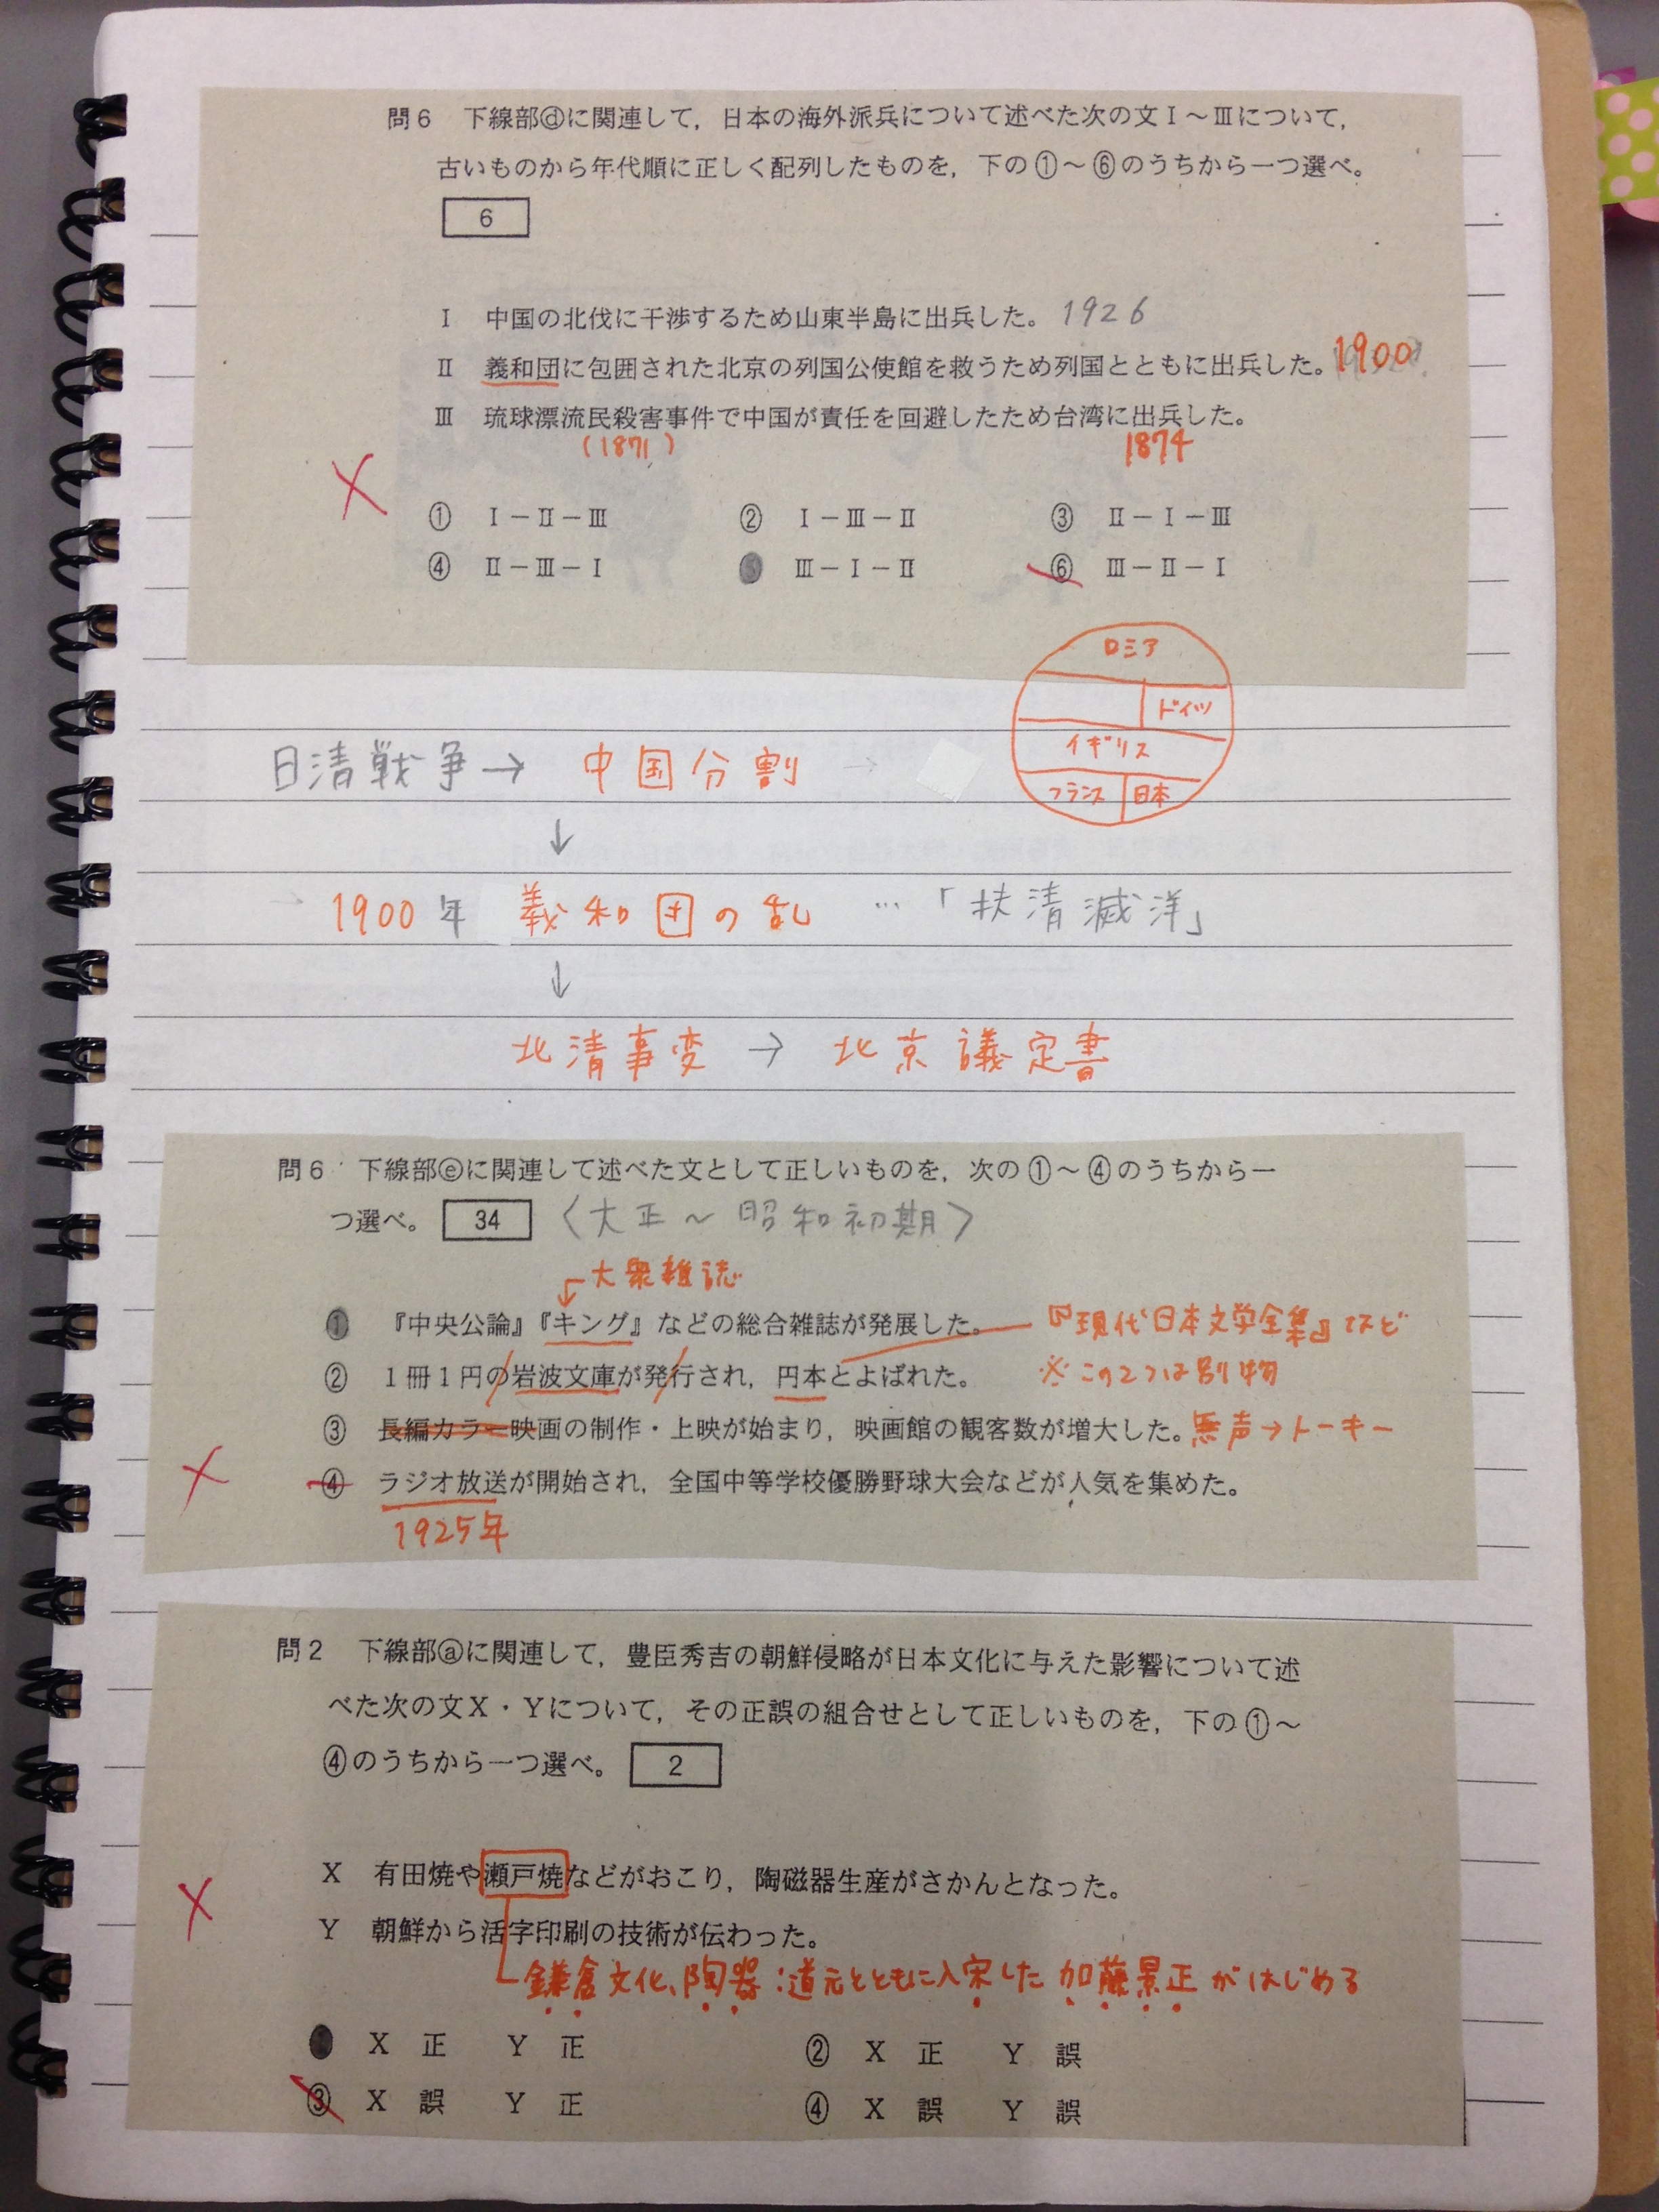 問6 下線部ⓓに関連して，日本の海外派兵について述べた次の文Ⅰ～Ⅲについて，
古いものから年代順に正しく配列したものを，下の①～⑥のうちから一つ選べ。
6
Ⅰ 中国の北伐に干渉するため山東半島に出兵した。 1926
Ⅱ 義和団に包囲された北京の列国公使館を救うため列国とともに出兵した。 1900
Ⅲ 琉球漂流民殺害事件で中国が責任を回避したため台湾に出兵した。
(1871) 1874
① Ⅰ－Ⅱ－Ⅲ ② Ⅰ－Ⅲ－Ⅱ ③ Ⅱ－Ⅰ－Ⅲ
④ Ⅱ－Ⅲ－Ⅰ ⑤ Ⅲ－Ⅰ－Ⅱ ⑥ Ⅲ－Ⅱ－Ⅰ
ロシア
ドイツ
イギリス
フランス 日本
日清戦争→ 中国分割 →
↓
→ 1900年 義和団の乱 …「扶清滅洋」
↓
北清事変 → 北京議定書
問6 下線部ⓔに関連して述べた文として正しいものを，次の①～④のうちから一
つ選べ。 34 〈大正～昭和初期〉
大衆雑誌
① 『中央公論』『キング』などの総合雑誌が発展した。 『現代日本文学全集』など
② 1冊1円の岩波文庫が発行され，円本とよばれた。 ※この2つは別物
③ 長編カラー映画の制作・上映が始まり，映画館の観客数が増大した。 無声→トーキー
④ ラジオ放送が開始され，全国中等学校優勝野球大会などが人気を集めた。
1925年
問2 下線部ⓐに関連して，豊臣秀吉の朝鮮侵略が日本文化に与えた影響について述
べた次の文X・Yについて，その正誤の組合せとして正しいものを，下の①～
④のうちから一つ選べ。 2
X 有田焼や瀬戸焼などがおこり，陶磁器生産がさかんとなった。
Y 朝鮮から活字印刷の技術が伝わった。
鎌倉文化、陶器：道元とともに入宋した加藤景正がはじめる
① X 正 Y 正 ② X 正 Y 誤
③ X 誤 Y 正 ④ X 誤 Y 誤